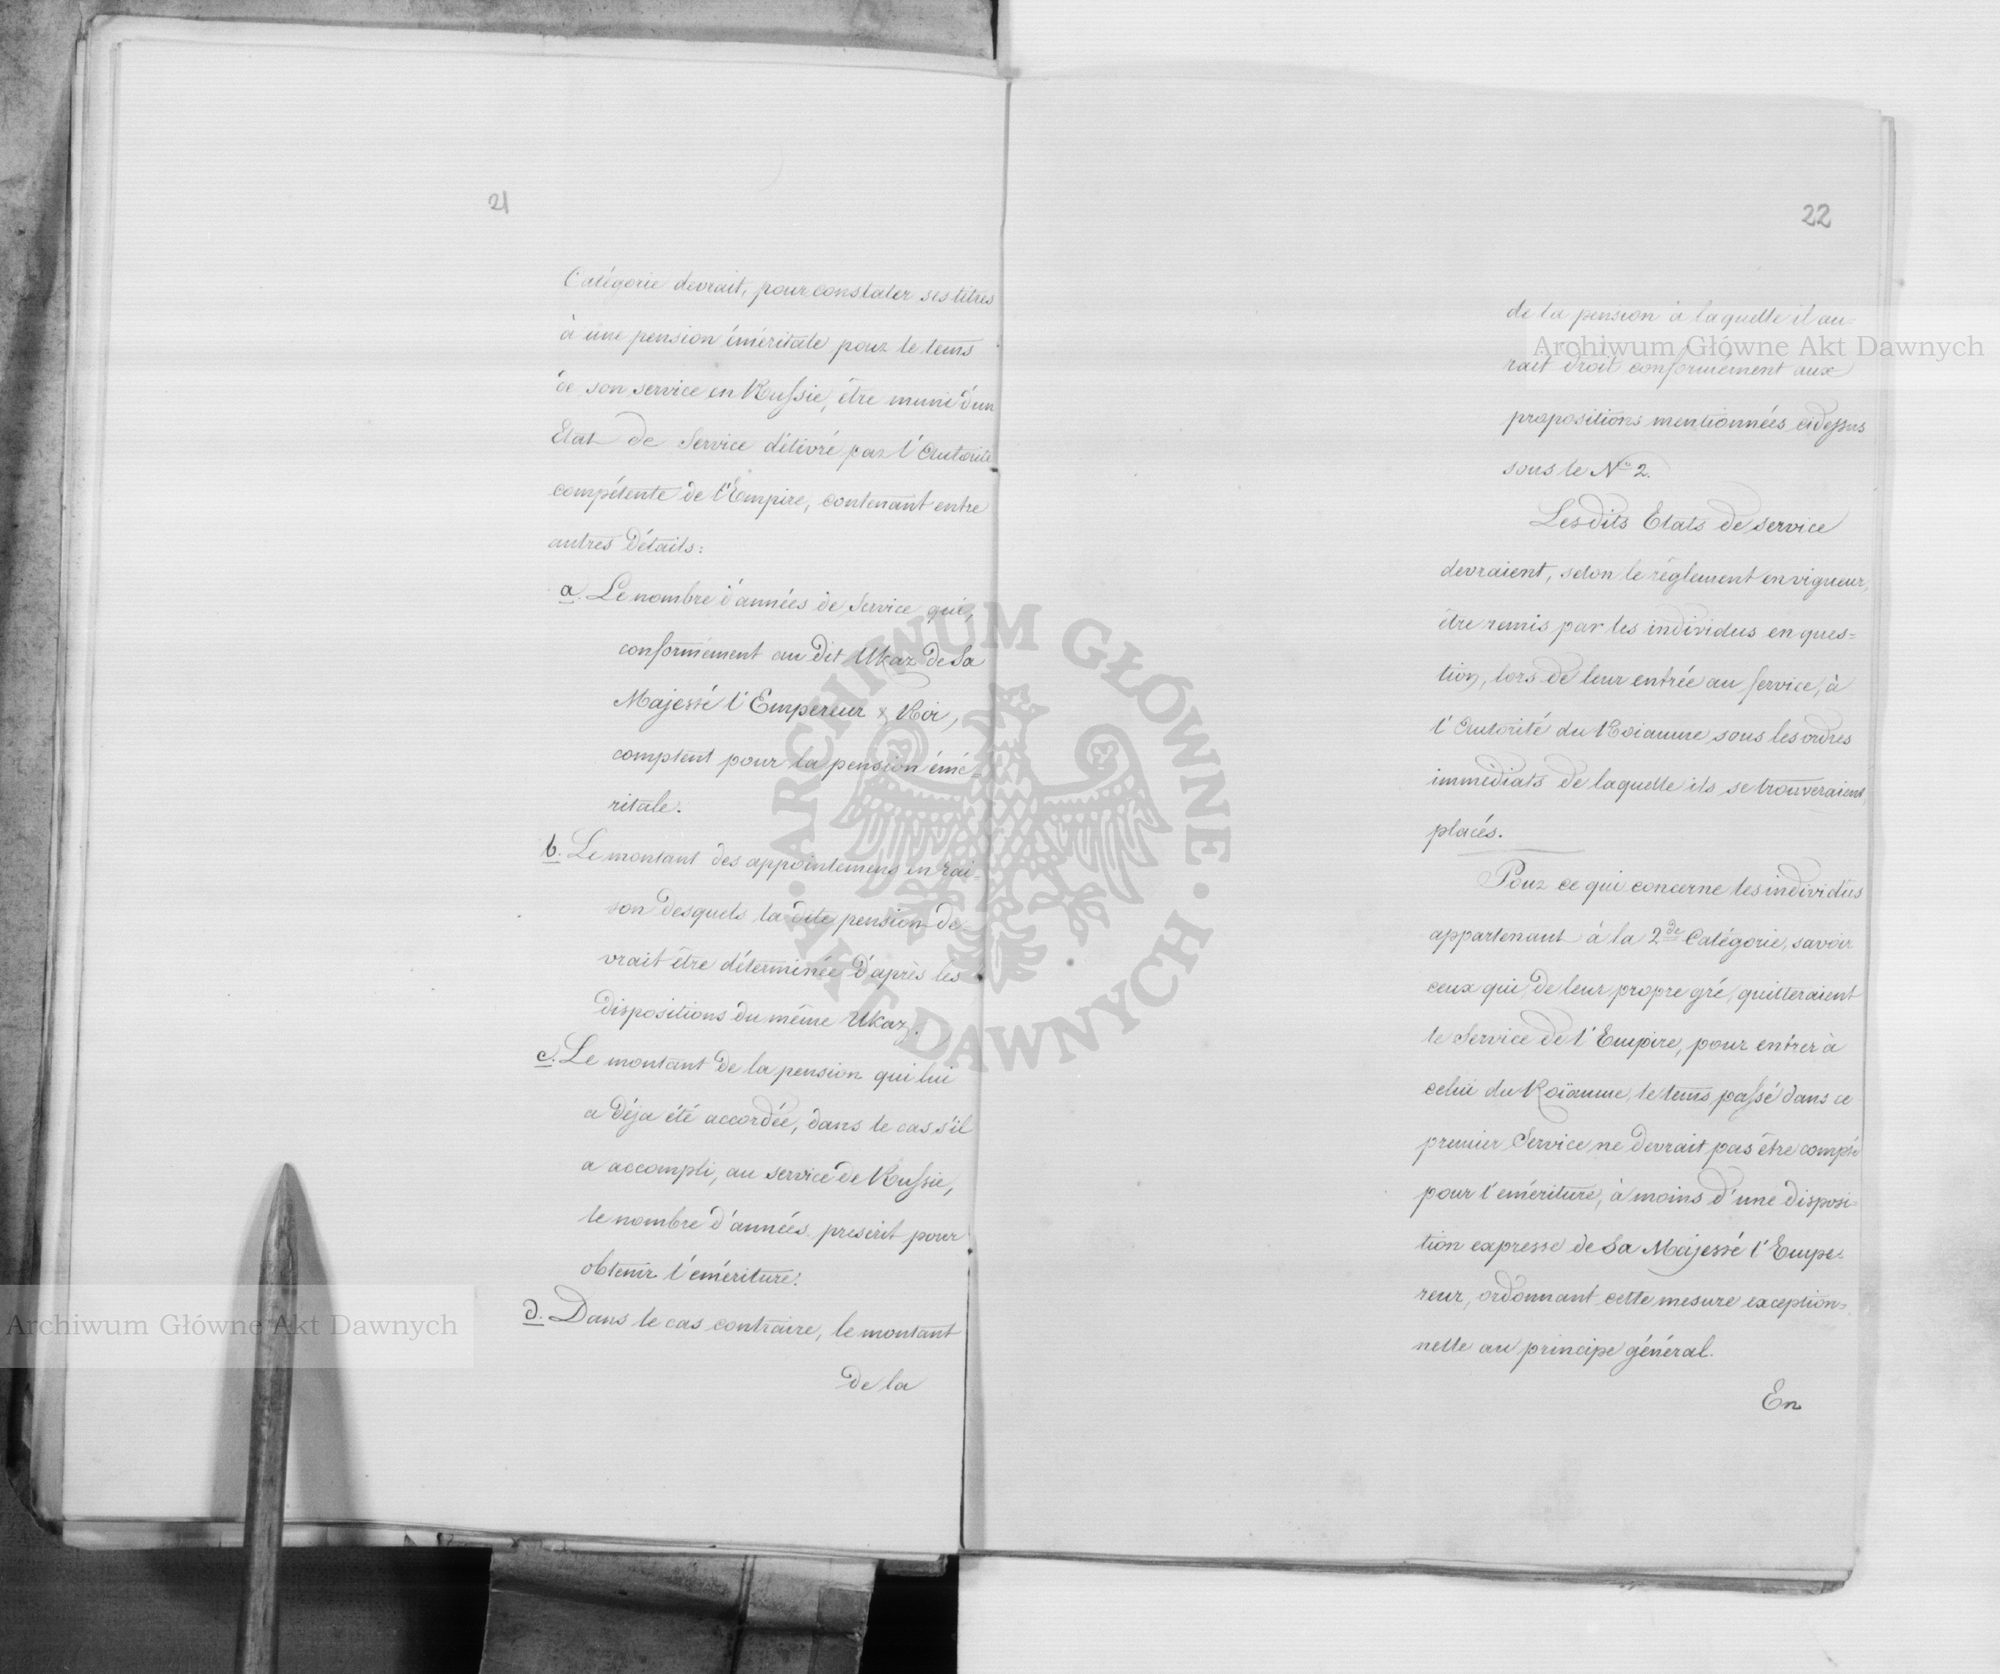 21
Catégorie devrait, pour constater ses titres
à une pension éméritale pour le tems
de son service en Russie, être muni d'un
Etat de Service délivré par l'Autorité
compétente de l'Empire, contenant entre
autres détails:
a. Le nombre d'années de Service qui,
conformément au dit Ukaz de Sa
Majesté l'Empereur & Roi,
comptent pour la pension émé-
ritale.
b. Le montant des appointemens en rai-
son desquels la dite pension de-
vrait être déterminée d'après les
dispositions du même Ukaz.
c. Le montant de la pension qui lui
a déja été accordée, dans le cas s'il
a accompli, au service de Russie,
le nombre d'années prescrit pour
obtenir l'eméríture.
d. Dans le cas contraire, le montant
de la
22
de la pension à laquelle il au-
rait droit conformément aux
propositions mentionnées cidessus
sous le No 2.
Les dits Etats de service
devraient, selon le règlement en vigueur,
être remis par les individus en ques=
tion, lors de leur entrée au service, à
l'Autorité du Roiaume, sous les ordres
immédiats de laquelle ils se trouveraient
placés.
Pour ce qui concerne les individus
appartenant à la 2de Catégorie, savoir
ceux qui, de leur propre gré, quitteraient
le Service de l'Empire, pour entrer à
celui du Roïaume, le tems passé dans ce
premier Service ne devrait pas être compté
pour l'eméríture, à moins d'une disposi-
tion expresse de Sa Majesté l'Empe-
reur, ordonnant cette mesure exception=
nelle au principe général.
En
Archiwum Główne Akt Dawnych
Archiwum Główne Akt Dawnych
ARCHIWUM GŁÓWNE · AKT DAWNYCH ·